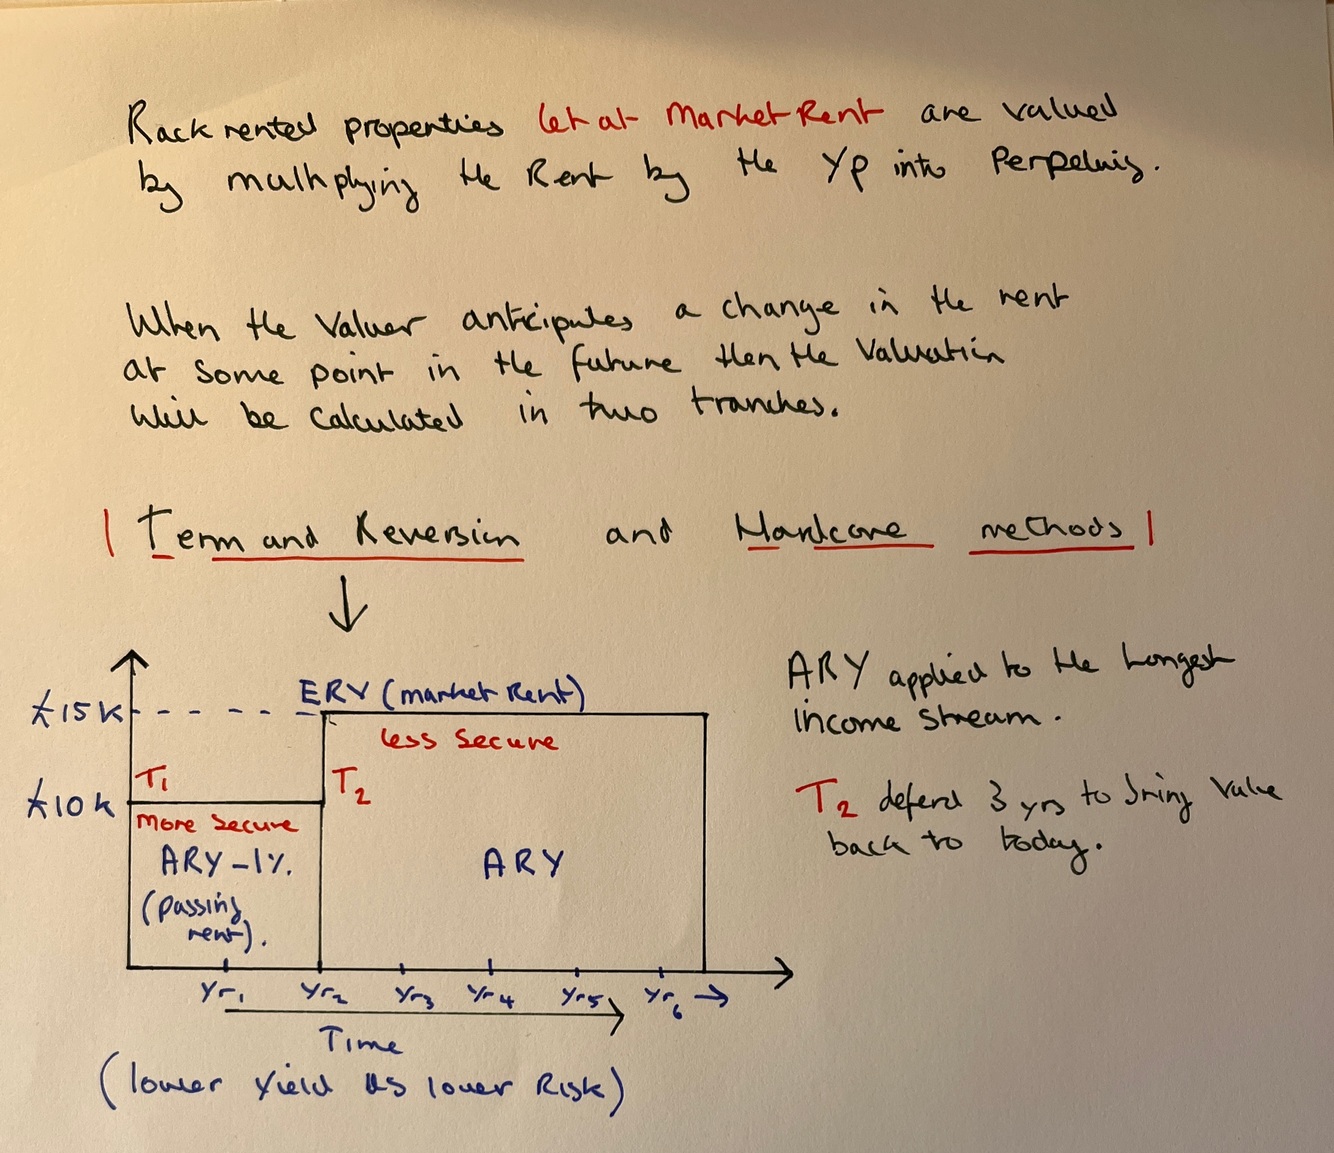 Rack rented properties let at Market Rent are valued
by multiplying the Rent by the YP into Perpetuity.
When the Valuer anticipates a change in the rent
at some point in the future then the Valuation
will be calculated in two tranches.
Term and Reversion and Hardcore methods
ERV (market Rent)
£15K
less secure
T1
T2
£10K
more secure
ARY -1%.
(passing
rent).
ARY
yr1 yr2 yr3 yr4 yr5 yr6
Time
(lower yield as lower Risk)
ARY applied to the longest
income stream.
T2 deferd 3 yrs to bring value
back to today.